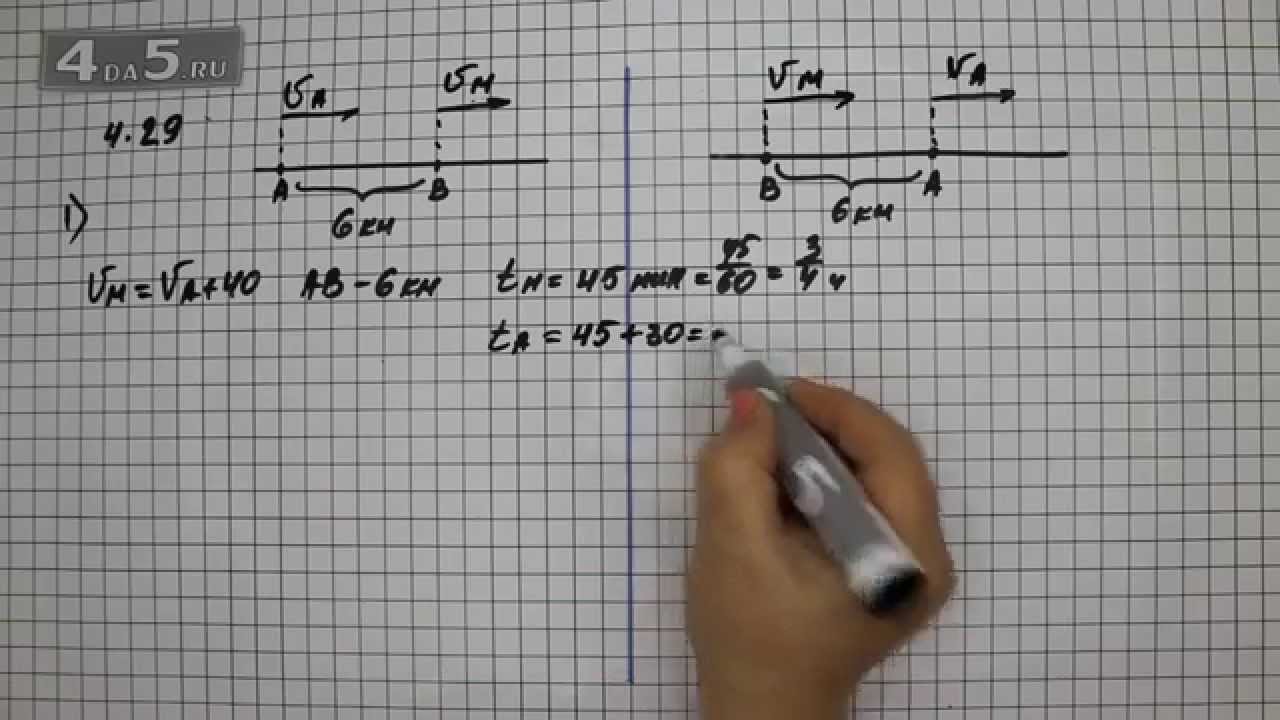 4DA5.RU
4.29
υA υM
A B
6 км
υM υA
B A
6 км
1)
υM = υA + 40 AB - 6 км tM = 45 мин = 45/60 = 3/4 ч
tA = 45 + 30 =